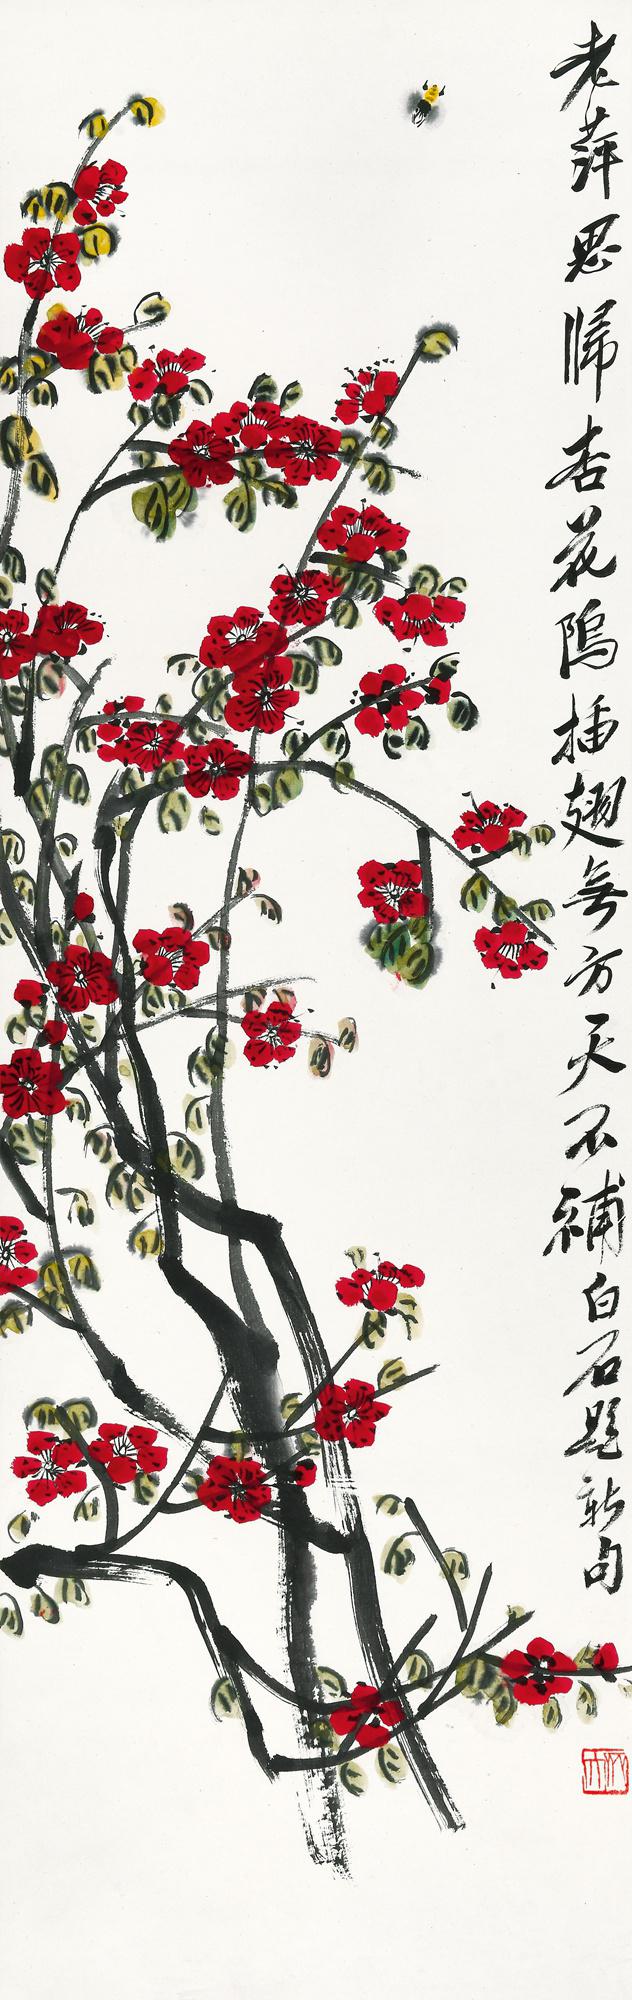 老萍思歸杏花隖插翅無方天不補白石題新句